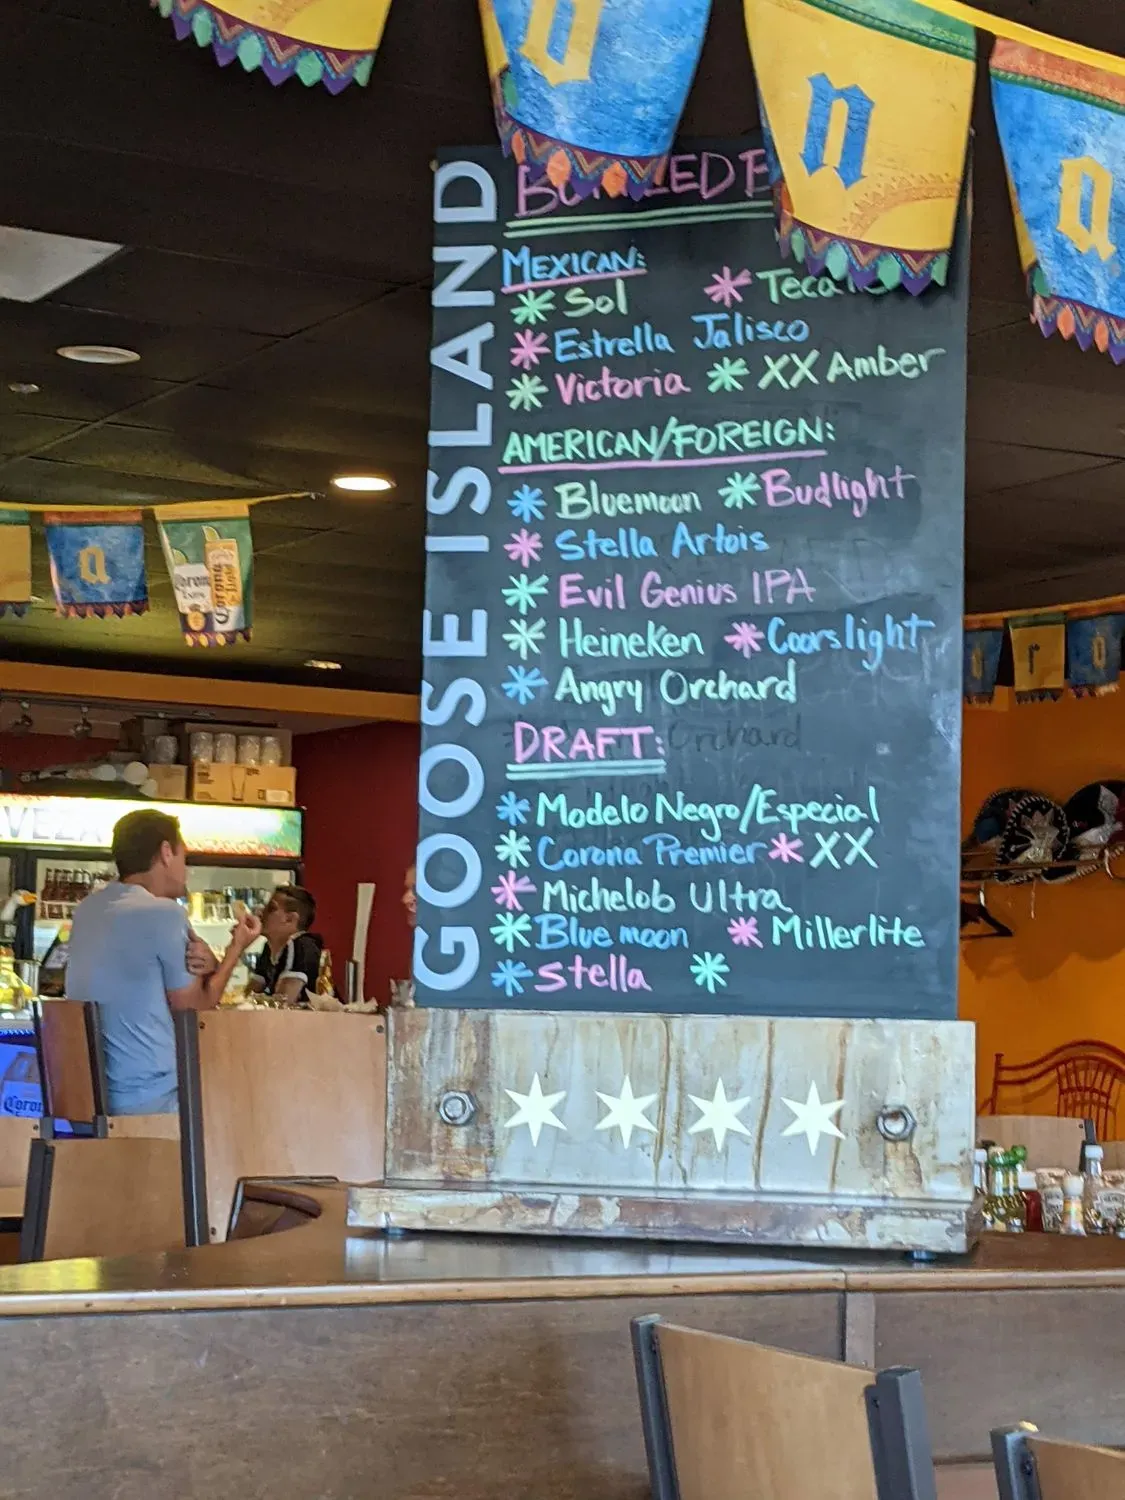 GOOSE ISLAND
MEXICAN:
* Sol * Tecate
* Estrella Jalisco
* Victoria * XX Amber
AMERICAN/FOREIGN:
* Bluemoon * Budlight
* Stella Artois
* Evil Genius IPA
* Heineken * Coorslight
* Angry Orchard
DRAFT: Orchard
* Modelo Negro/Especial
* Corona Premier * XX
* Michelob Ultra
* Blue moon * Millerlite
* Stella *
n
a
a
Corona
Corona
Light
r
o
Corona